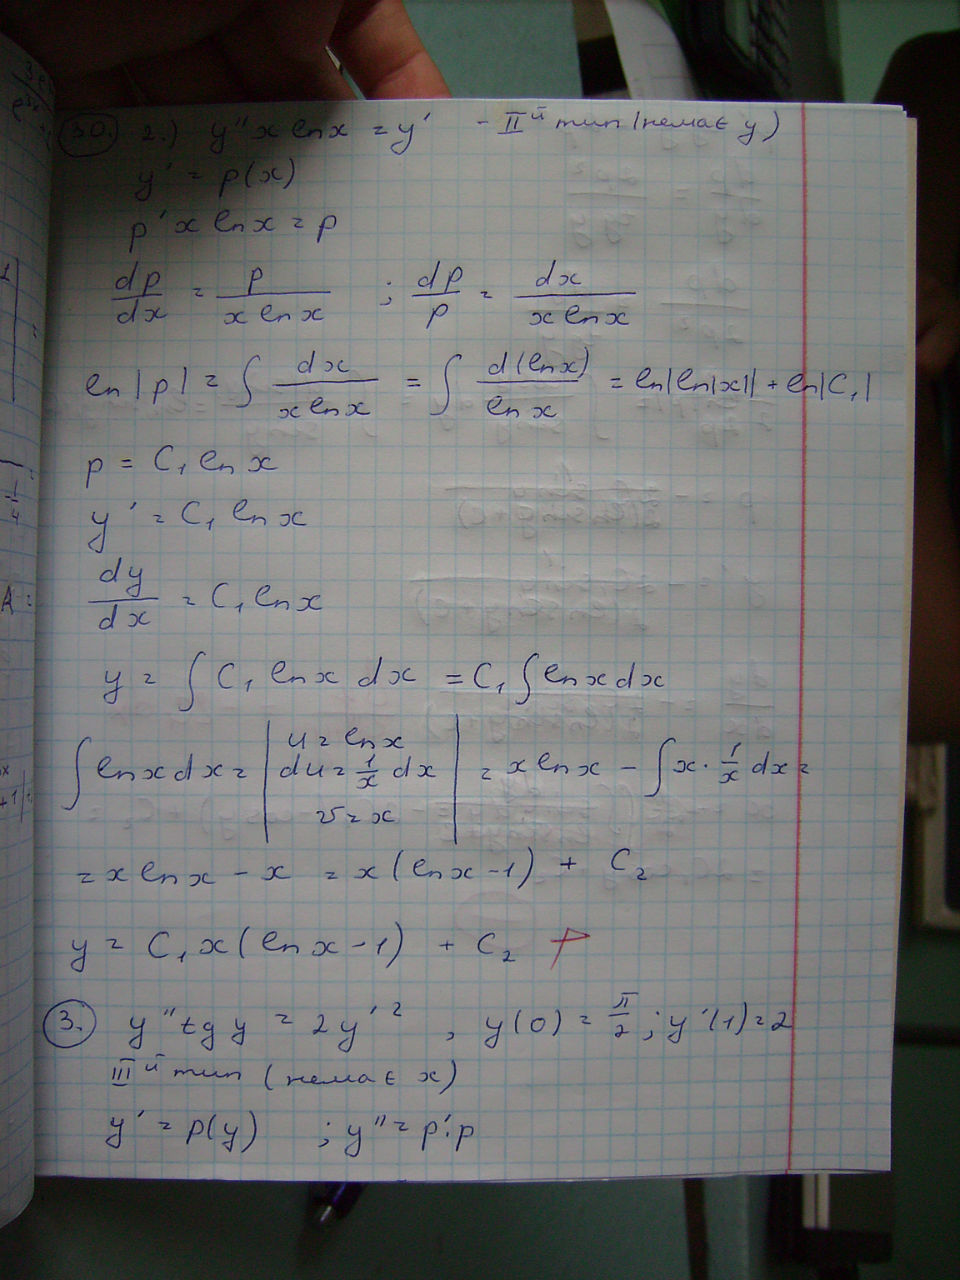 30. 2.) y'' x ln x = y' - II й тип (немає y)
y' = p(x)
p' x ln x = p
dp/dx = p/(x ln x) ; dp/p = dx/(x ln x)
ln |p| = ∫ dx/(x ln x) = ∫ d(ln x)/ln x = ln|ln|x|| + ln|C₁|
p = C₁ ln x
y' = C₁ ln x
dy/dx = C₁ ln x
y = ∫ C₁ ln x dx = C₁ ∫ ln x dx
∫ ln x dx = | u = ln x du = 1/x dx v = x | = x ln x - ∫ x · 1/x dx =
= x ln x - x = x (ln x - 1) + C₂
y = C₁ x (ln x - 1) + C₂
3. y'' tg y = 2y'² , y(0) = π/2 ; y'(1) = 2
III й тип (немає x)
y' = p(y) ; y'' = p'·p